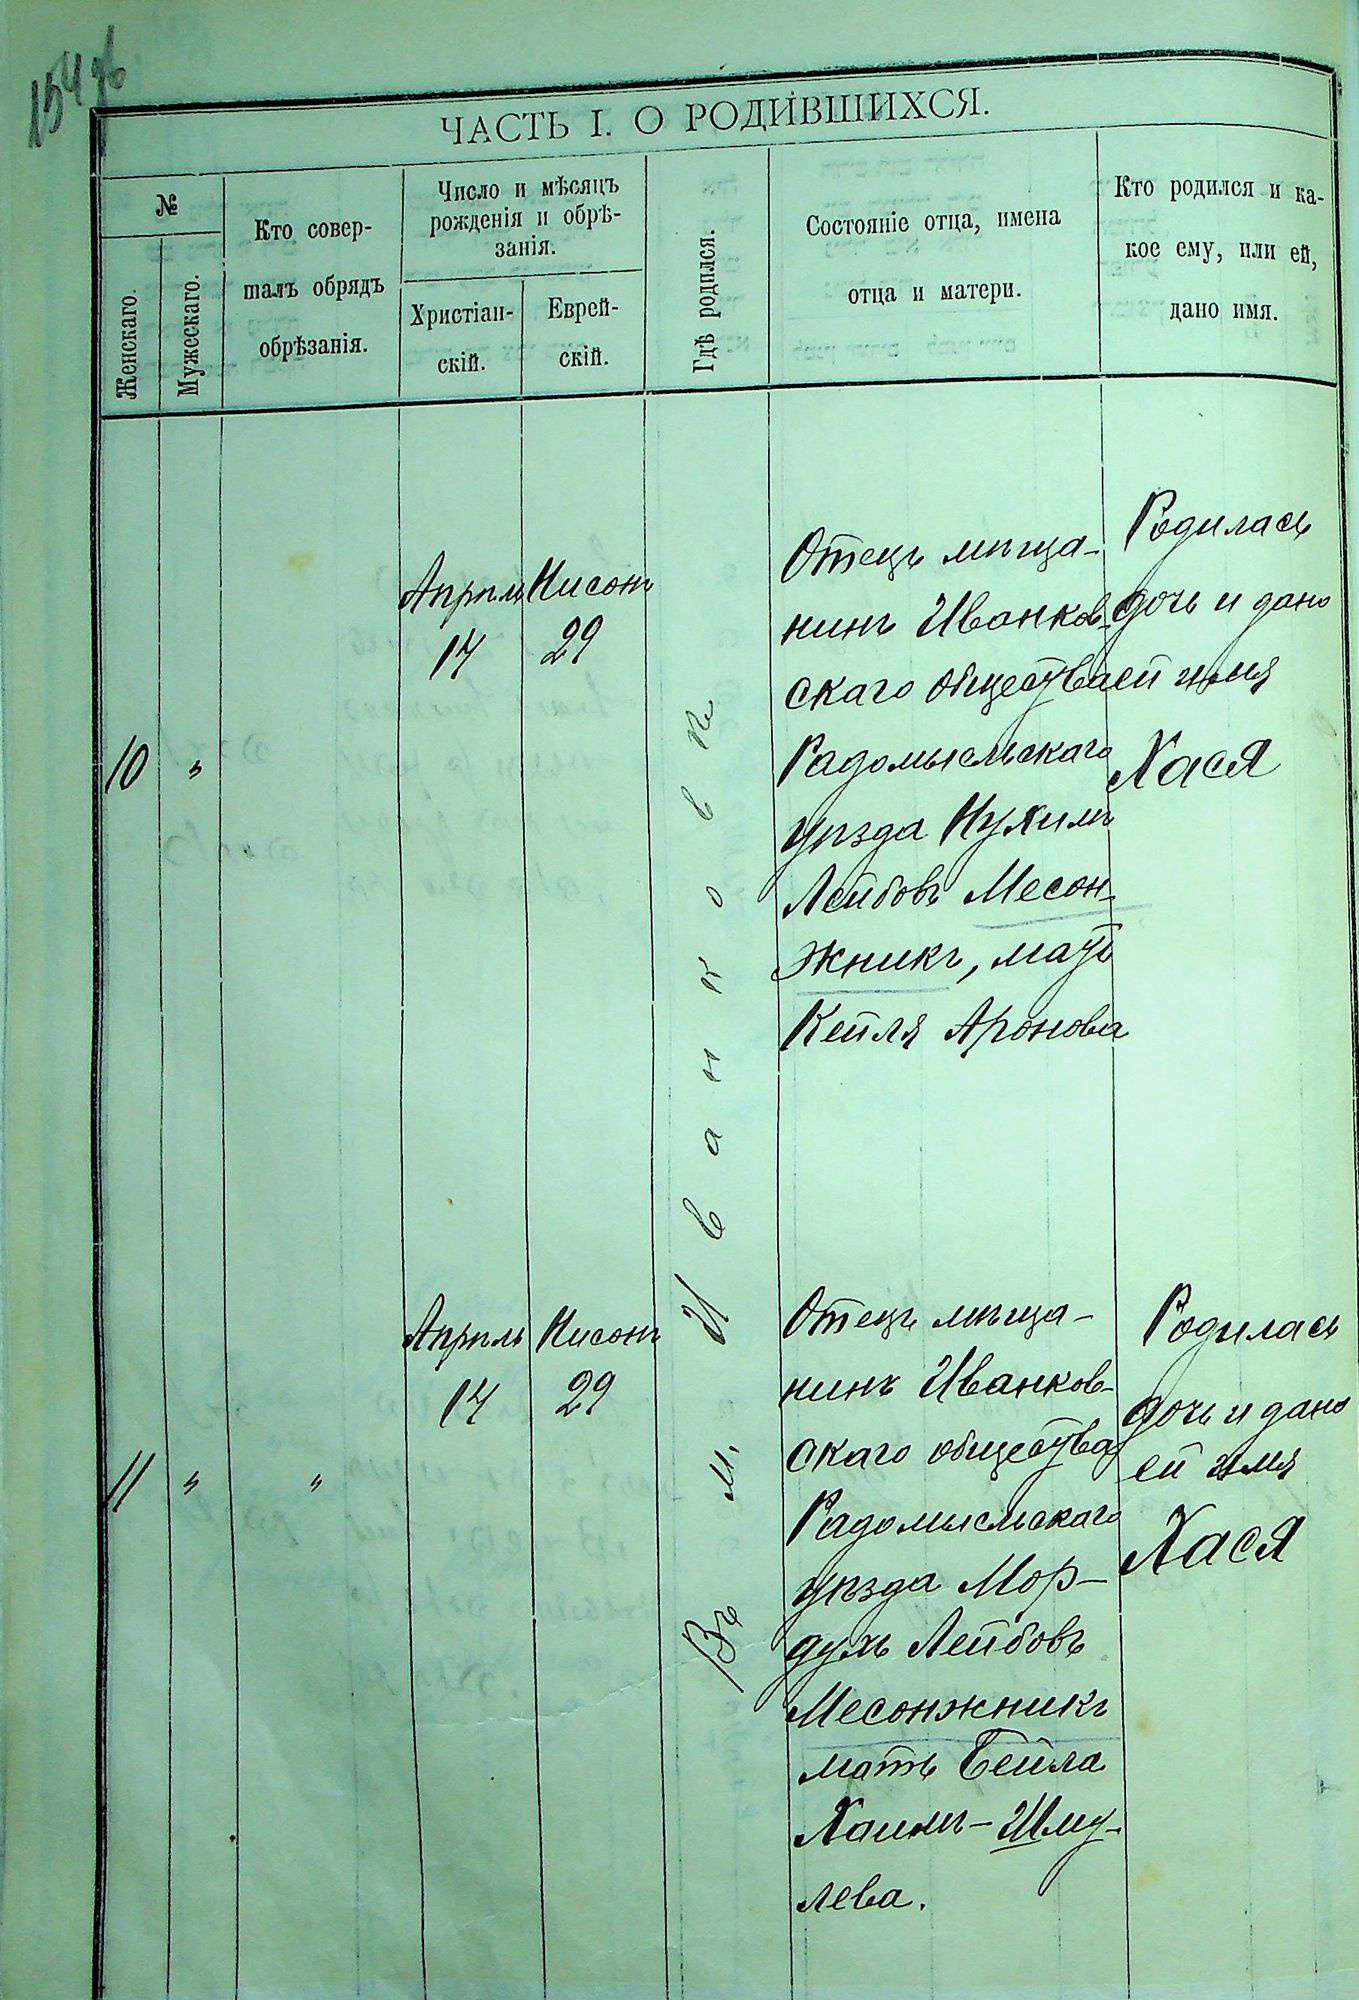 154 об
ЧАСТЬ I. О РОДИВШИХСЯ.
№
Женскаго.
Мужескаго.
Кто совер-
шалъ обрядъ
обрѣзанія.
Число и мѣсяцъ
рожденія и обрѣ-
занія.
Христіан-
скій.
Еврей-
скій.
Гдѣ родился.
Состояніе отца, имена
отца и матери.
Кто родился и ка-
кое ему, или ей,
дано имя.
10
"
Апрѣль
17
Нисонъ
29
Въ м. Иванковѣ
Отецъ мѣща-
нинъ Иванков-
скаго общества
Радомысльскаго
уѣзда Нухимъ
Лейбовъ Месон-
жникъ, мать
Кейля Аронова
Родилась
дочь и дано
ей имя
Хася
11
"
"
Апрѣль
17
Нисонъ
29
Отецъ мѣща-
нинъ Иванков-
скаго общества
Радомысльскаго
уѣзда Мор-
духъ Лейбовъ
Месонжникъ
мать Бейла
Хаимъ-Шму-
лева.
Родилась
дочь и дано
ей имя
Хася